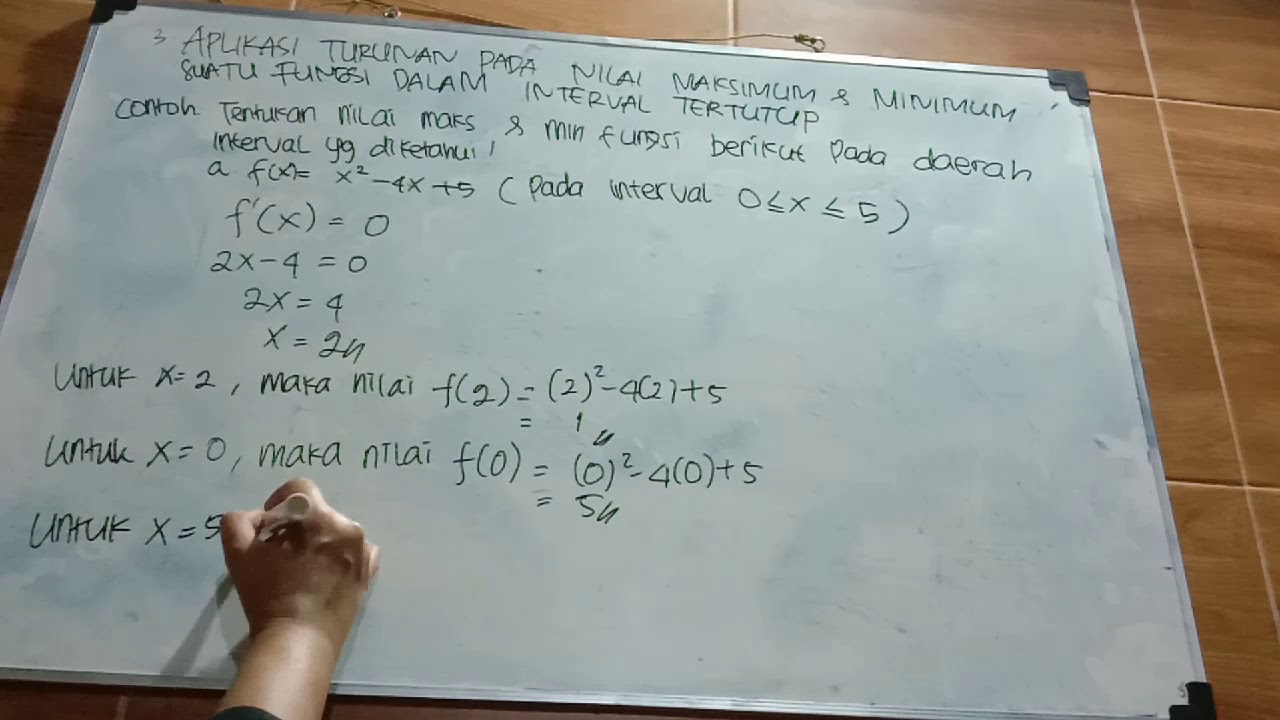 3 APLIKASI TURUNAN PADA NILAI MAKSIMUM & MINIMUM
SUATU FUNGSI DALAM INTERVAL TERTUTUP
Contoh. Tentukan nilai maks & min fungsi berikut pada daerah
interval yg diketahui!
a f(x)= x²-4x+5 (Pada interval 0≤x≤5)
f'(x) = 0
2x-4 = 0
2x = 4
x = 2//
Untuk x=2, maka nilai f(2) = (2)²-4(2)+5
= 1//
Untuk x=0, maka nilai f(0) = (0)²-4(0)+5
= 5//
Untuk x=5